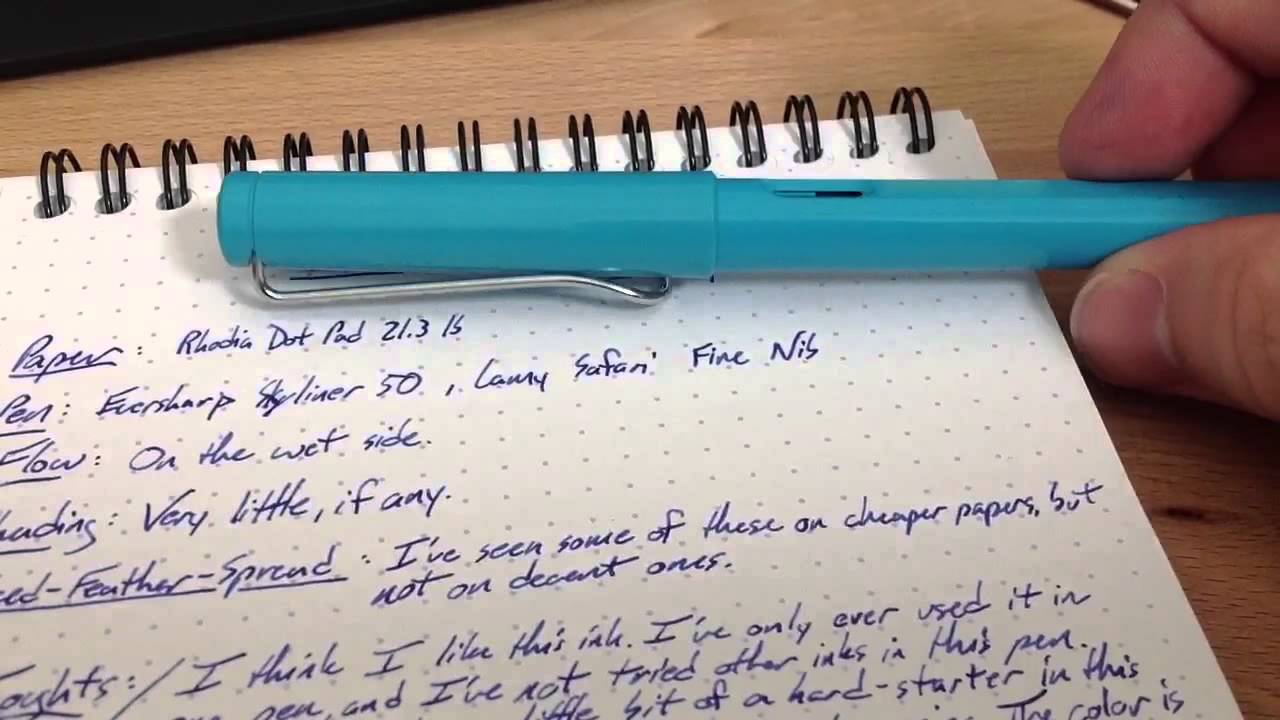 Paper: Rhodia Dot Pad 21.3 lb
Pen: Eversharp Skyliner 50, Lamy Safari Fine Nib
Flow: On the wet side.
hading: Very little, if any.
eed-Feather-Spread: I've seen some of these on cheaper papers, but
not on decent ones.
oughts:/ I think I like this ink. I've only ever used it in
pen, and I've not tried other inks in this pen.
little bit of a hard-starter in this
The color is